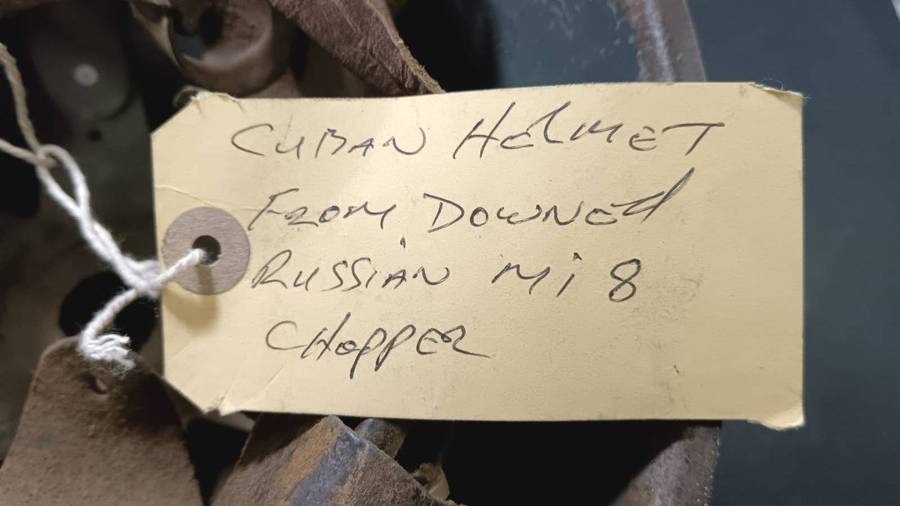 CUBAN HELMET
FROM DOWNED
RUSSIAN Mi 8
CHOPPER